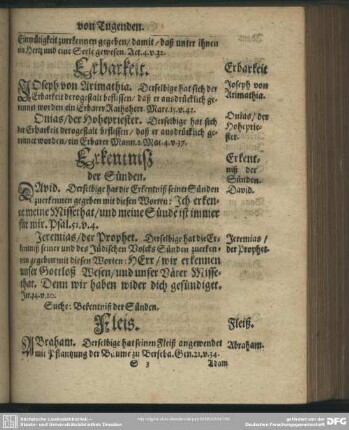 von Tugenden.
Einmütigkeit zuerkennen gegeben / damit / daß unter ihnen
ein Hertz und eine Seele gewesen. Act. 4. v. 32.
Erbarkeit.
Erbarkeit
JOseph von Arimathia. Derselbige hat sich der
Erbarkeit dero gestalt beflissen / daß er ausdrücklich ge-
nennt worden ein Erbarer Rathsherr. Marc. 15. v. 43.
Joseph von
Arimathia.
Onias / der Hohepriester. Derselbige hat sich
der Erbarkeit dero gestalt beflissen / daß er ausdrücklich ge-
nennet worden / ein Erbarer Mann. 2. Mac. 4. v. 37.
Onias / der
Hoheprie-
ster.
Erkentniß
der Sünden.
Erkent-
niß der
Sünden.
DAvid. Derselbige hat die Erkentniß seiner Sünden
zuerkennen gegeben mit diesen Worten: Ich erken-
ne meine Missethat / und meine Sünde ist immer
für mir. Psal. 51. v. 4.
David.
Jeremias / der Prophet. Derselbige hat die Er-
kentniß seiner und des Jüdischen Volcks Sünden zuerken-
nen gegeben mit diesen Worten: HErr / wir erkennen
unser Gottloß Wesen / und unser Väter Misse-
that. Denn wir haben wider dich gesündiget.
Jer. 14. v. 20.
Jeremias /
der Prophet.
Suche: Bekentniß der Sünden.
Fleis.
Fleiß.
ABraham. Derselbige hat seinen Fleiß angewendet
mit Pflantzung der Bäume zu Berseba. Gen. 21. v. 34.
Abraham.
S 3
Adam
Sächsische Landesbibliothek -
Staats- und Universitätsbibliothek Dresden
gefördert von der
Deutschen Forschungsgemeinschaft
DFG